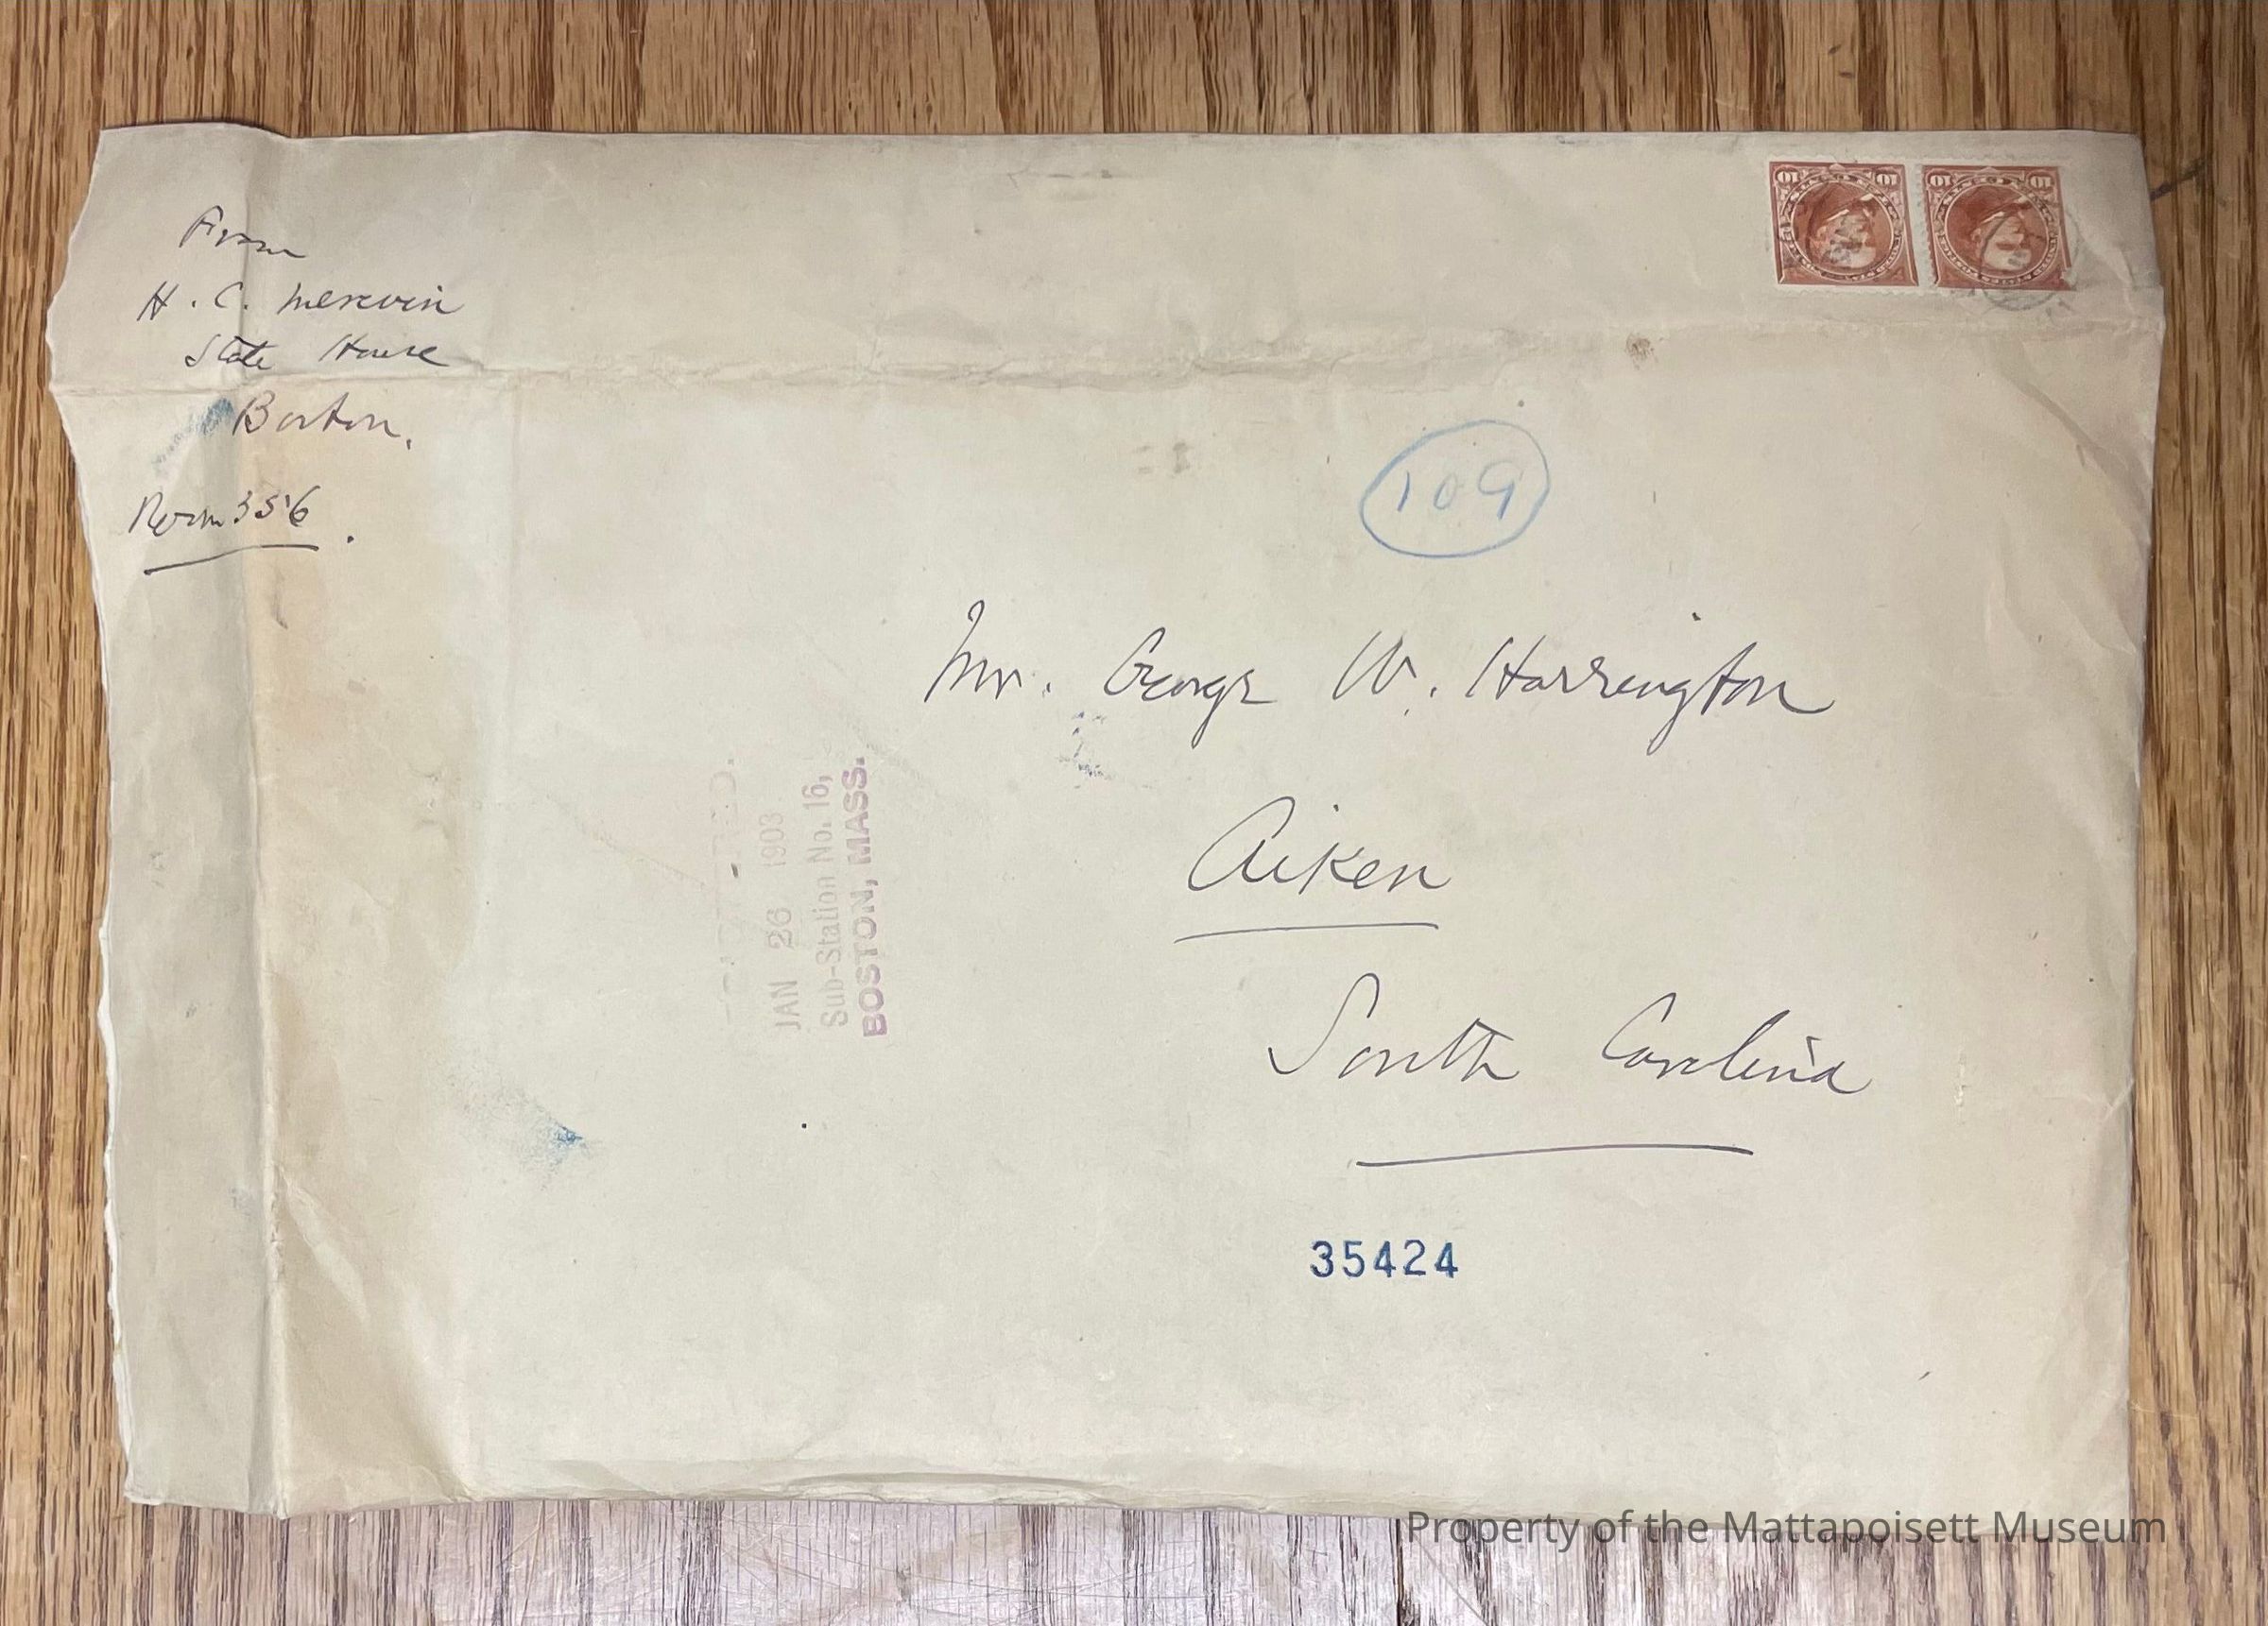 From
H. C. Merwin
State House
Boston.
Room 356.
109
Mr. George W. Harrington
Aiken
South Carolina
REGISTERED.
JAN 26 1903
Sub-Station No. 16,
BOSTON, MASS.
35424
10 10
10 10
Property of the Mattapoisett Museum